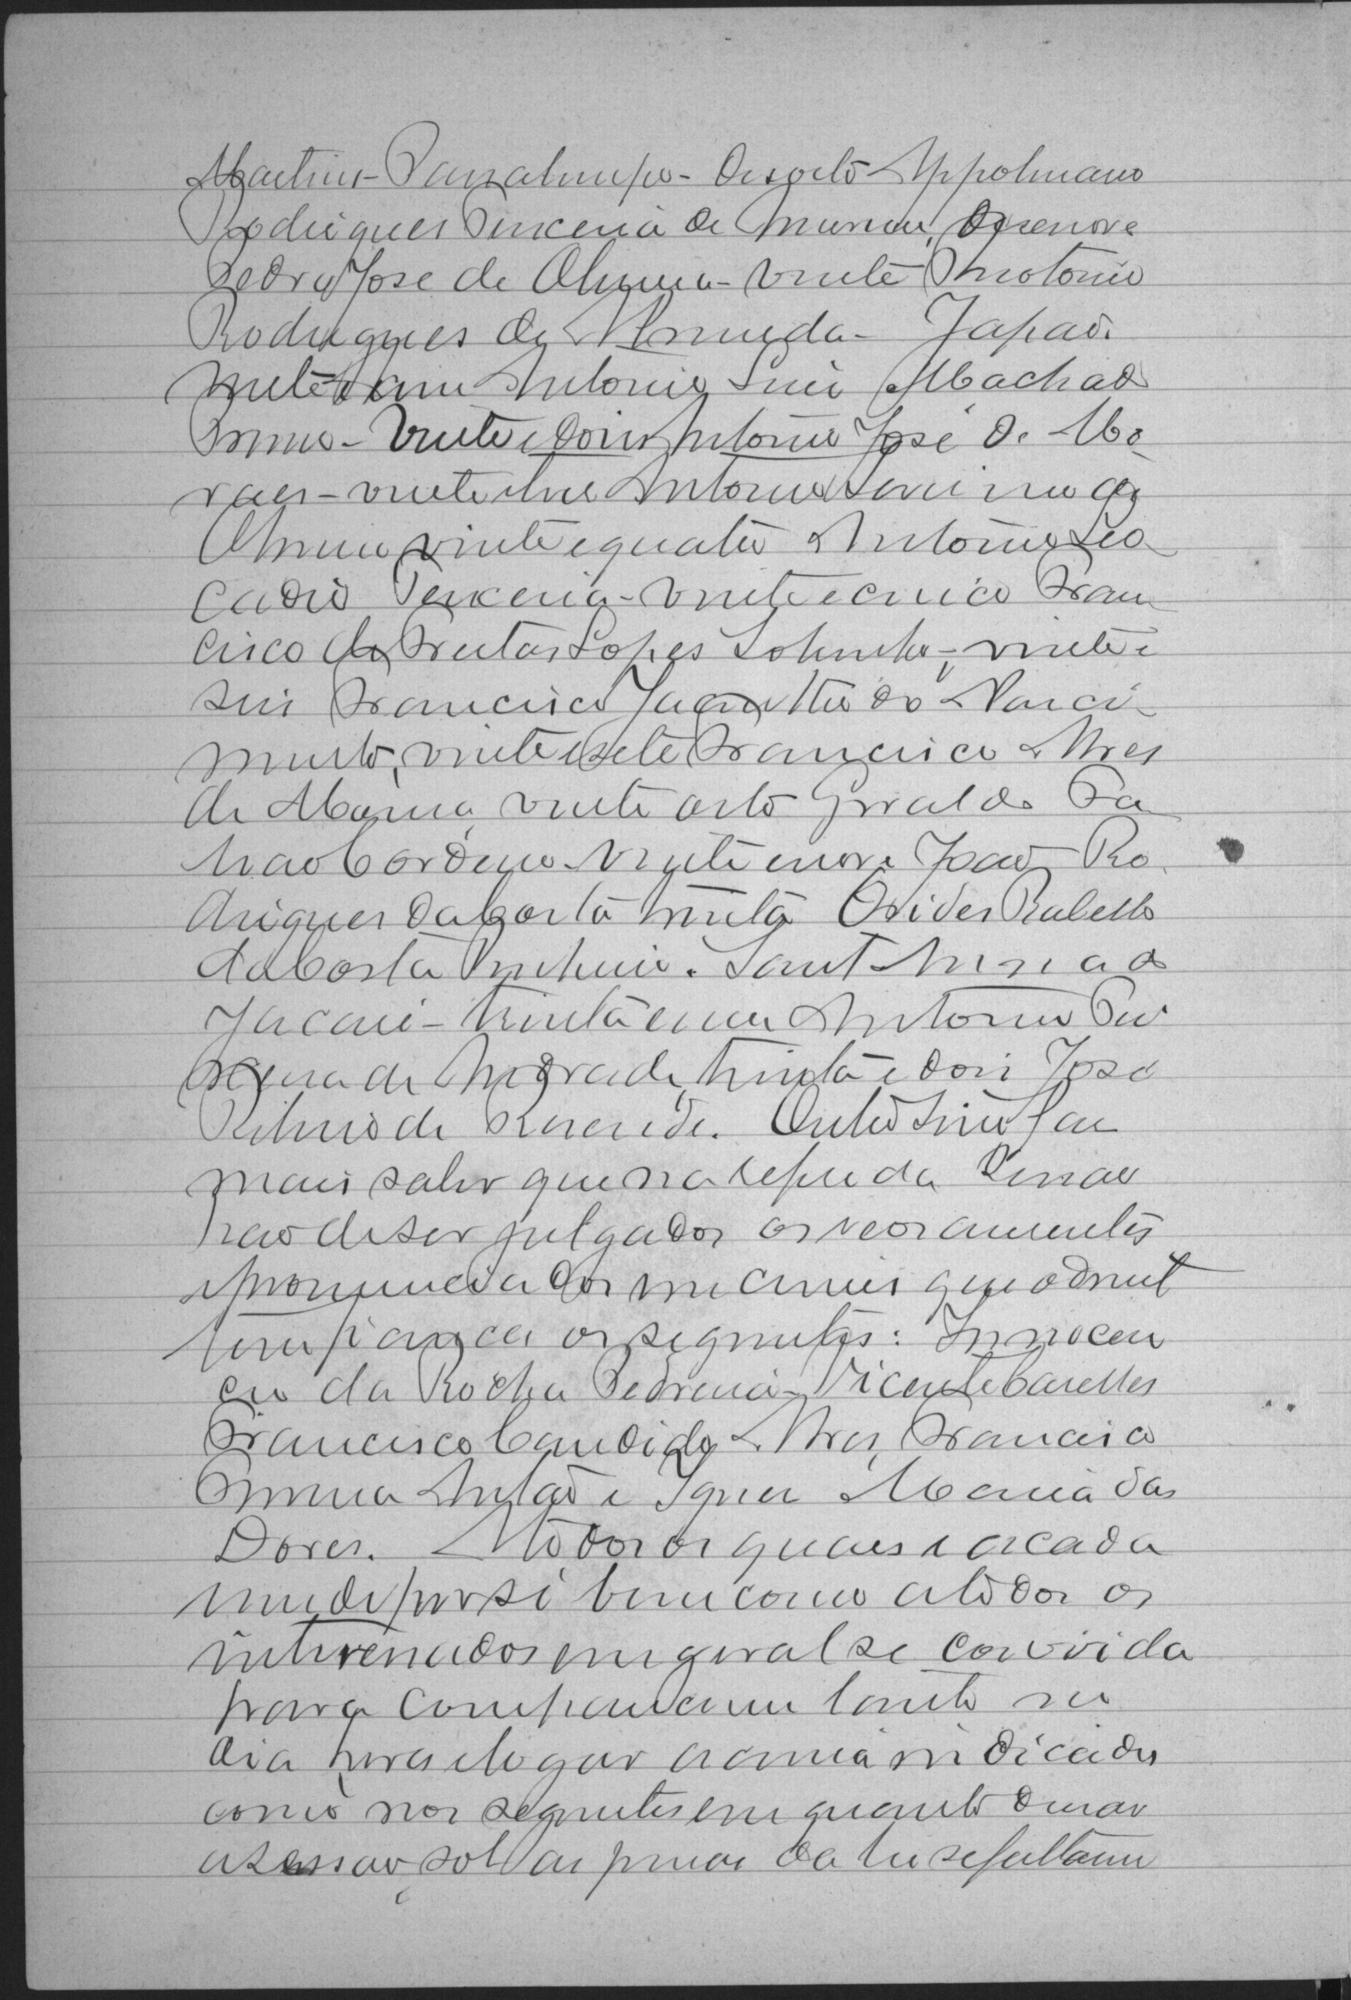 Martins - Passatempo - Desoito Hyppolinario
Rodrigues Teixeira de Moraes, Desenove
Pedro José de Oliveira - vinte Antonio
Rodrigues de Almeida - Japão.
vinte e um Antonio Luiz Machado
Primo - Vinte e dois Antonio José de Mo
raes - vinte e tres Antonio Severino de
Oliveira vinte e quatro Antonio Leo
cadio Teixeira - vinte e cinco Fran
cisco de Freitas Lopes Sobrinho, vinte e
seis Francisco do Nasci
mento, vinte e sete Francisco Alves
de Moura, vinte oito Geraldo Fa
Cordeiro - Vinte e nove João Ro
drigues da Costa trinta Orides Rabello
da Costa Pinheiro. Sant'Anna do
Jacaré - trinta e um Antonio Fer
reira de Andrade, trinta e dois José
Ribeiro de Resende. Outro sim faz
mais saber que na referida Sessão
hão de ser julgados os
e pronunciados em crimes que admit
tem fiança os seguintes: Innocen
cio da Rocha Pedreira - Vicente
Francisco Candido Alves, Francisco
Antão e Ignez Maria das
Dores. A todos os quaes e a cada
um de per si bem como a todos os
interessados em geral se convida
para comparecerem tanto no
dia hora e logar acima indicados
como nos seguintes em quanto durar
a sessão, sob as penas da lei se faltarem